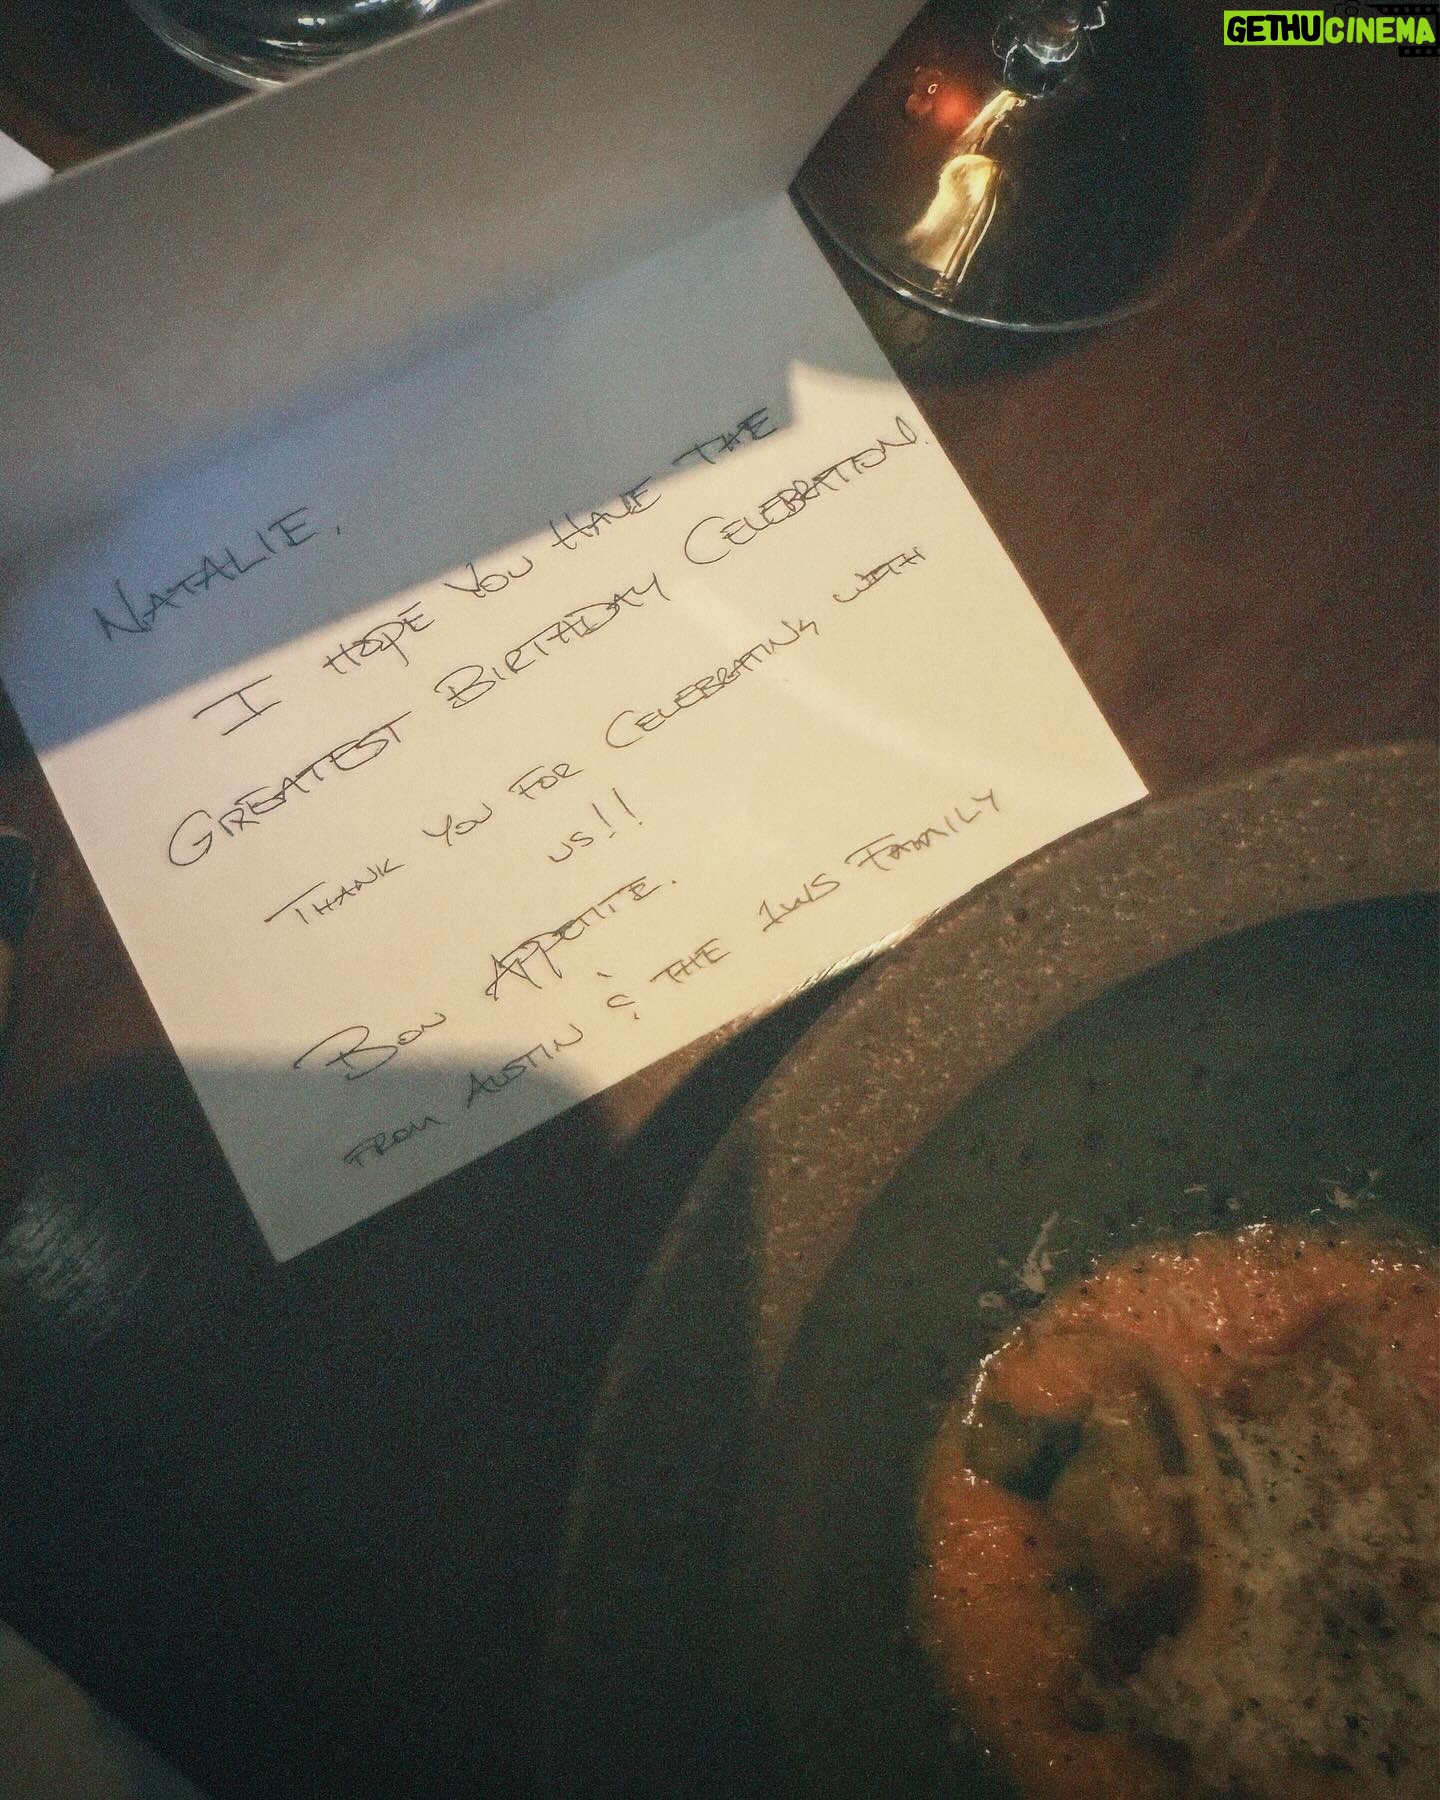 GETHUCINEMA
NATALIE,
I HOPE YOU HAVE THE
GREATEST BIRTHDAY CELEBRATION.
THANK YOU FOR CELEBRATING WITH
US!!
BON APPETITE.
FROM AUSTIN & THE 1WS FAMILY